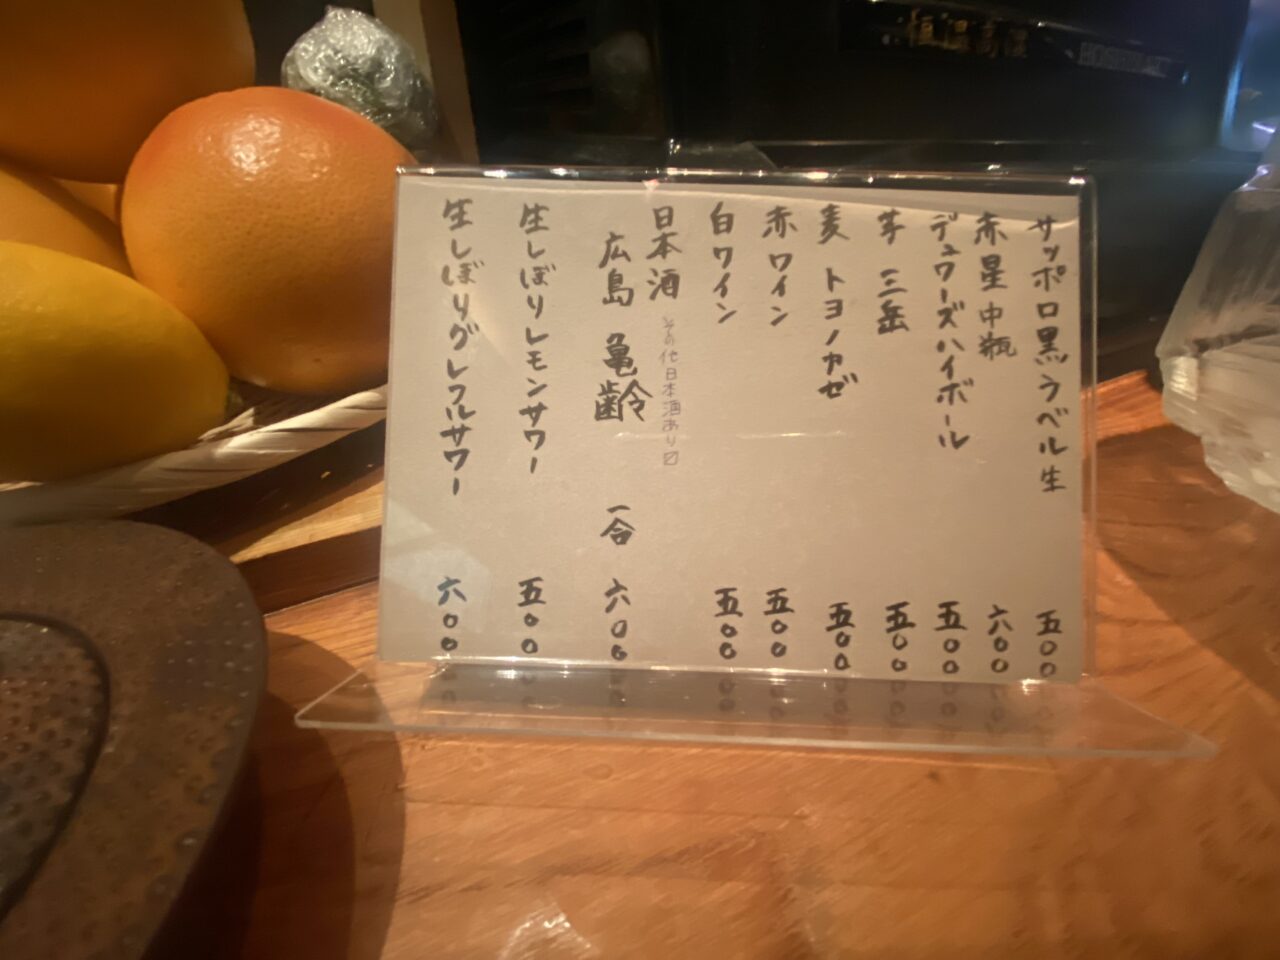 サッポロ黒ラベル生 五〇〇
赤星 中瓶 六〇〇
デュワーズハイボール 五〇〇
芋 三岳 五〇〇
麦 トヨノカゼ 五〇〇
赤ワイン 五〇〇
白ワイン 五〇〇
日本酒 その他日本酒あり〼
広島 亀齢 一合 六〇〇
生しぼりレモンサワー 五〇〇
生しぼりグレフルサワー 六〇〇
恒温高湿
HOSHIZAKI